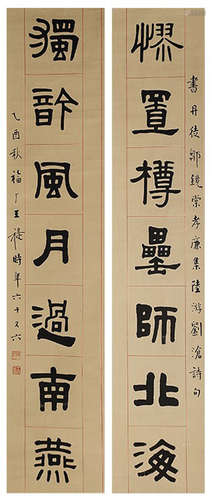 繆置樽罍師北海
書丹徒鄒鏡棠孝廉集陸游劉滄詩句
獨䪩風月過南燕
乙酉秋福厂王禔時年六十又六